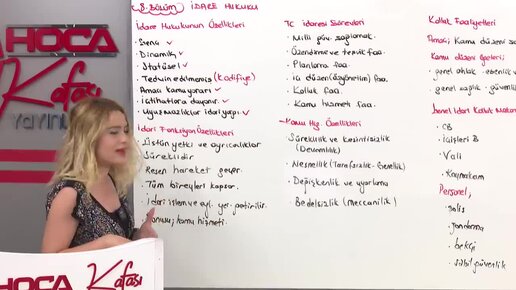 8. Bölüm İDARE HUKUKU
İdare Hukukunun Özellikleri
Genç ✓
Dinamik ✓
Statüsel ✓
Tedvin edilmemiş (Kodifiye)
Amacı kamu yararı ✓
İçtihatlara dayanır. ✓
Uyuşmazlıklar idari yargı ✓
İdari Fonksiyon Özellikleri
Üstün yetki ve ayrıcalıklar
Süreklidir
Resen hareket geçer.
Tüm bireyleri kapsar.
İdari işlem ve eyl. yer getirilir.
Konusu; kamu hizmeti.
TC idaresi Görevleri
Milli güv. sağlamak.
Özendirme ve teşvik faa.
Planlama faa.
iç düzen (özyönetim) faa.
Kolluk faa.
Kamu hizmeti faa.
Kamu Hiz. Özellikleri
Süreklilik ve kesintisizlik
(Devamlılık)
Nesnellik (Tarafsızlık-Genellik)
Değişkenlik ve uyarlama
Bedelsizlik (meccanilik)
Kolluk Faaliyetleri
Amaç; Kamu düzeni
Kamu düzeni ögeleri;
genel ahlak
genel sağlık - güvenlik
Genel İdari Kolluk
CB
İçişleri B
Vali
Kaymakam
Personel,
polis
jandarma
bekçi
sahil güvenlik
HOCA
Kafası
Yayınları
HOCA Kafası